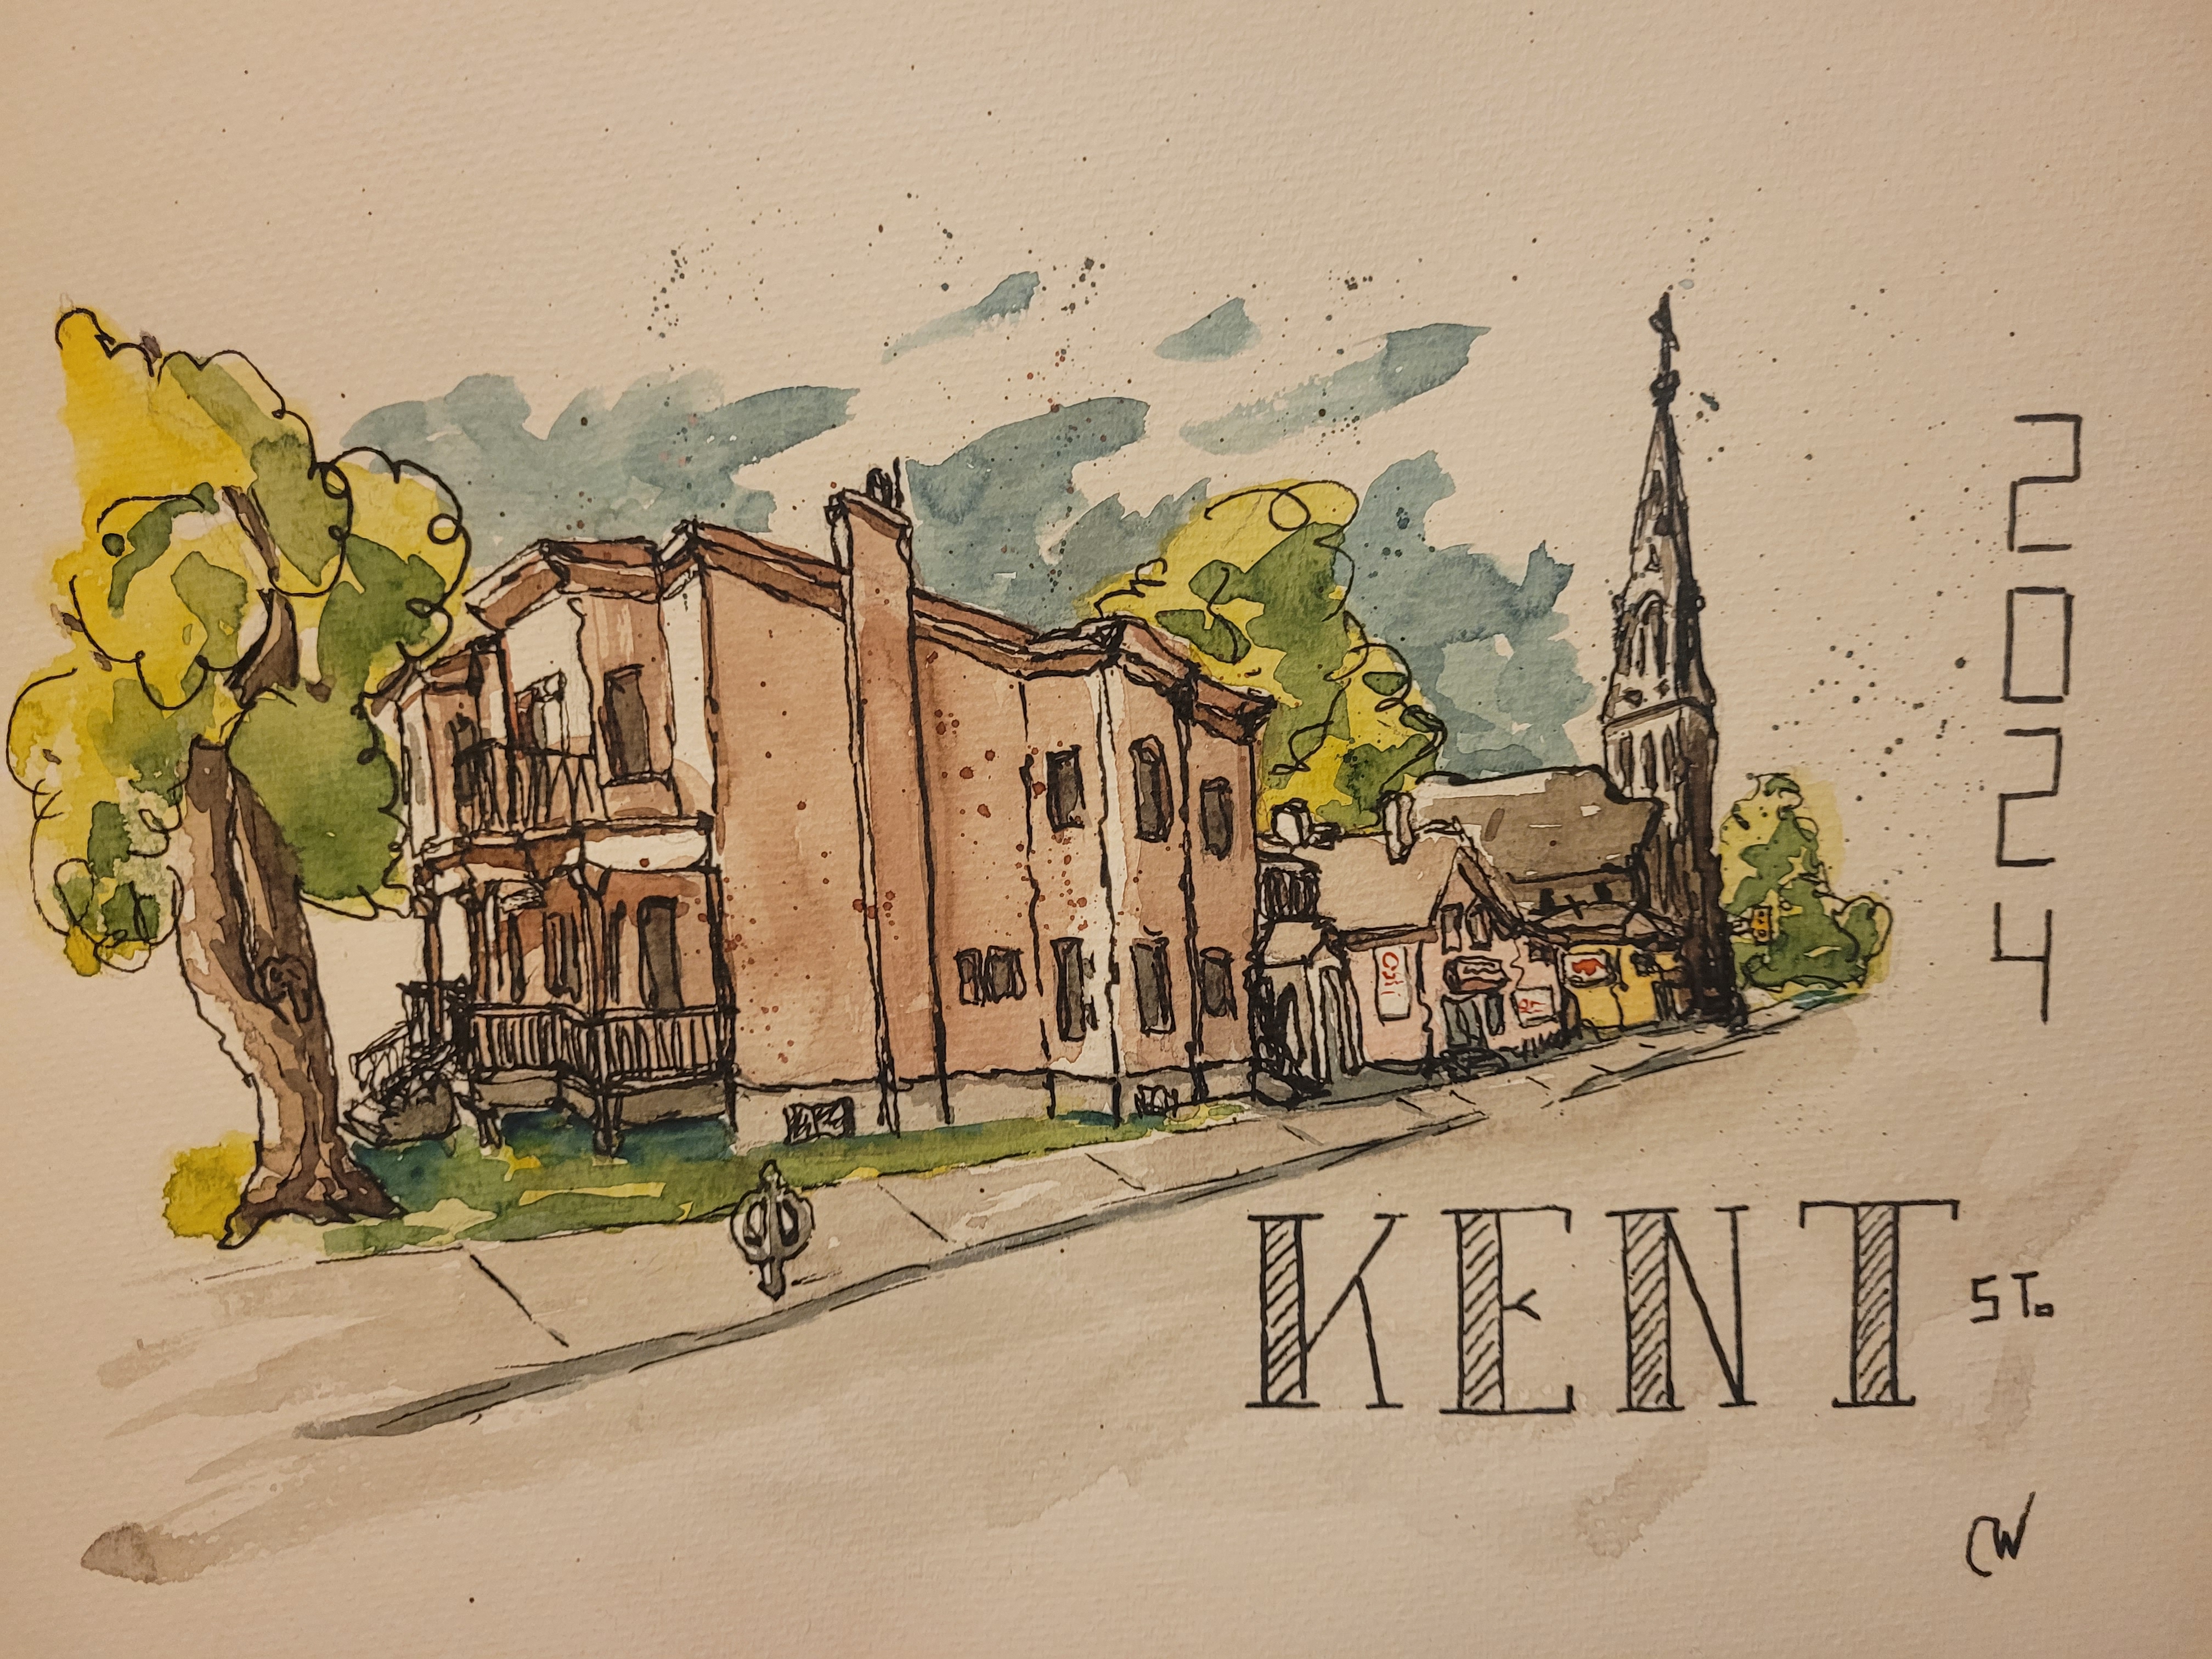 2024
KENT ST.
CW